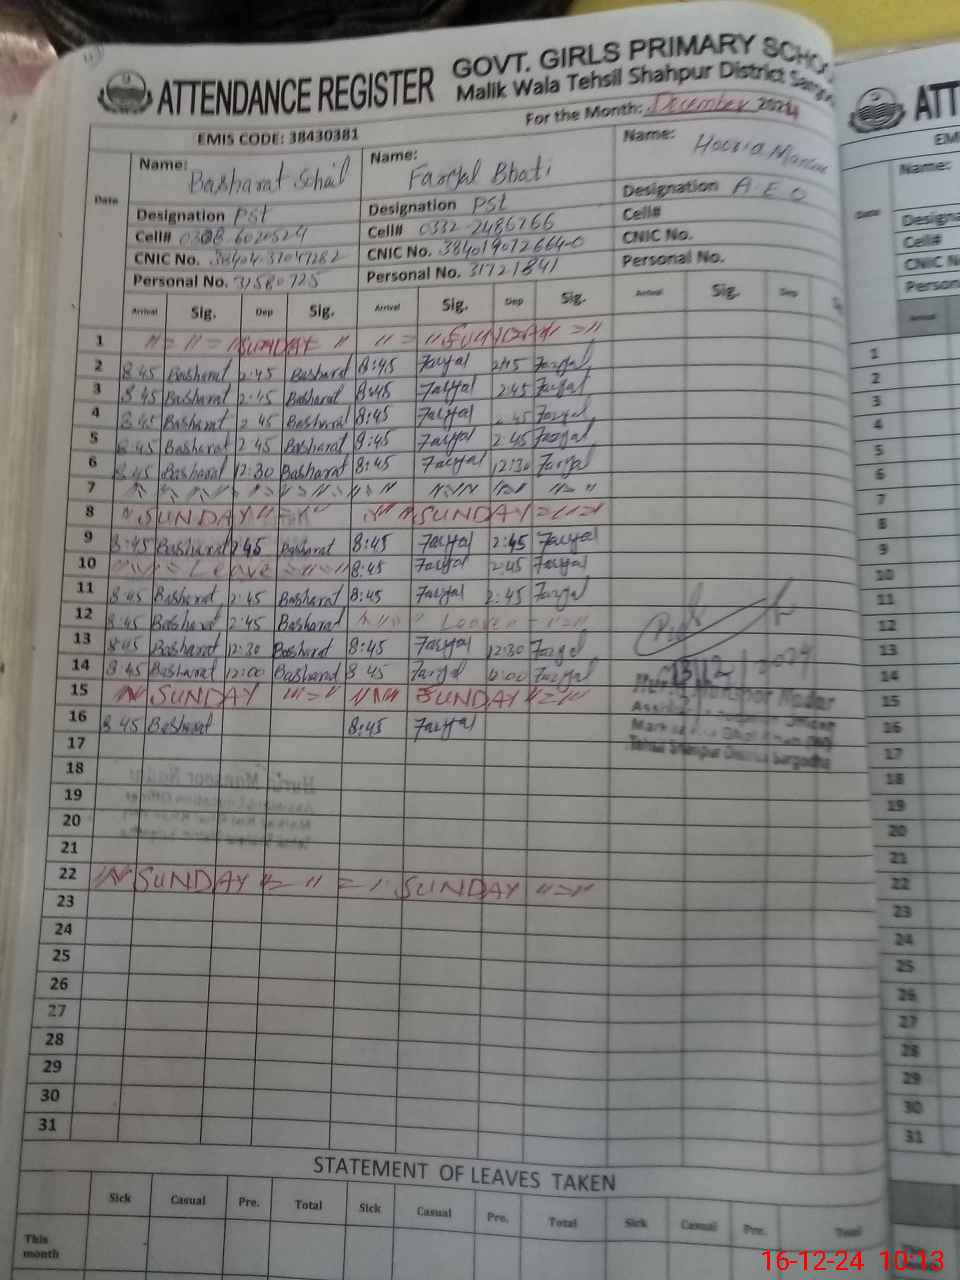 ATTENDANCE REGISTER
GOVT. GIRLS PRIMARY SCHO
Malik Wala Tehsil Shahpur District Sarg
For the Month: December 2024
EMIS CODE: 38430381
Date
Name: Basharat Sohail Name: Faryal Bhati Name:
Designation PST Designation PST Designation A E O
Cell# Cell# 0332-2486766 Cell#
CNIC No. CNIC No. CNIC No.
Personal No. 31580725 Personal No. 31721841 Personal No.
Arrival Sig. Dep Sig. Arrival Sig. Dep Sig. Arrival Sig. Dep
1 " = " = " SUNDAY = " " = " SUNDAY " = "
2 8:45 Basharat 2:45 Basharat 8:45 Faryal 2:45 Faryal
3 8:45 Basharat 2:45 Basharat 8:45 Faryal 2:45 Faryal
4 8:45 Basharat 2:45 Basharat 8:45 Faryal 2:45 Faryal
5 8:45 Basharat 2:45 Basharat 8:45 Faryal 2:45 Faryal
6 8:45 Basharat 12:30 Basharat 8:45 Faryal 12:30 Faryal
7
8 " SUNDAY " " SUNDAY = " = "
9 8:45 Basharat 2:45 Basharat 8:45 Faryal 2:45 Faryal
10 Leave 8:45 Faryal 2:45 Faryal
11 8:45 Basharat 2:45 Basharat 8:45 Faryal 2:45 Faryal
12 8:45 Basharat 2:45 Basharat Leave
13 8:45 Basharat 12:30 Basharat 8:45 Faryal 12:30 Faryal
14 8:45 Basharat 12:00 Basharat 8:45 Faryal Faryal
13/12/2024
15 SUNDAY " = " SUNDAY " = "
16 8:45 Basharat 8:45 Faryal
17
18
19
20
21
22 SUNDAY " = " = " SUNDAY " = "
23
24
25
26
27
28
29
30
31
STATEMENT OF LEAVES TAKEN
Sick Casual Pre. Total Sick Casual Pre. Total Sick Casual Pre. Total
This month
ATT
EM
Name:
Date
Designa
Cell#
CNIC N
Person
Arrival
1
2
3
4
5
6
7
8
9
10
11
12
13
14
15
16
17
18
19
20
21
22
23
24
25
26
27
28
29
30
31
16-12-24 10:13